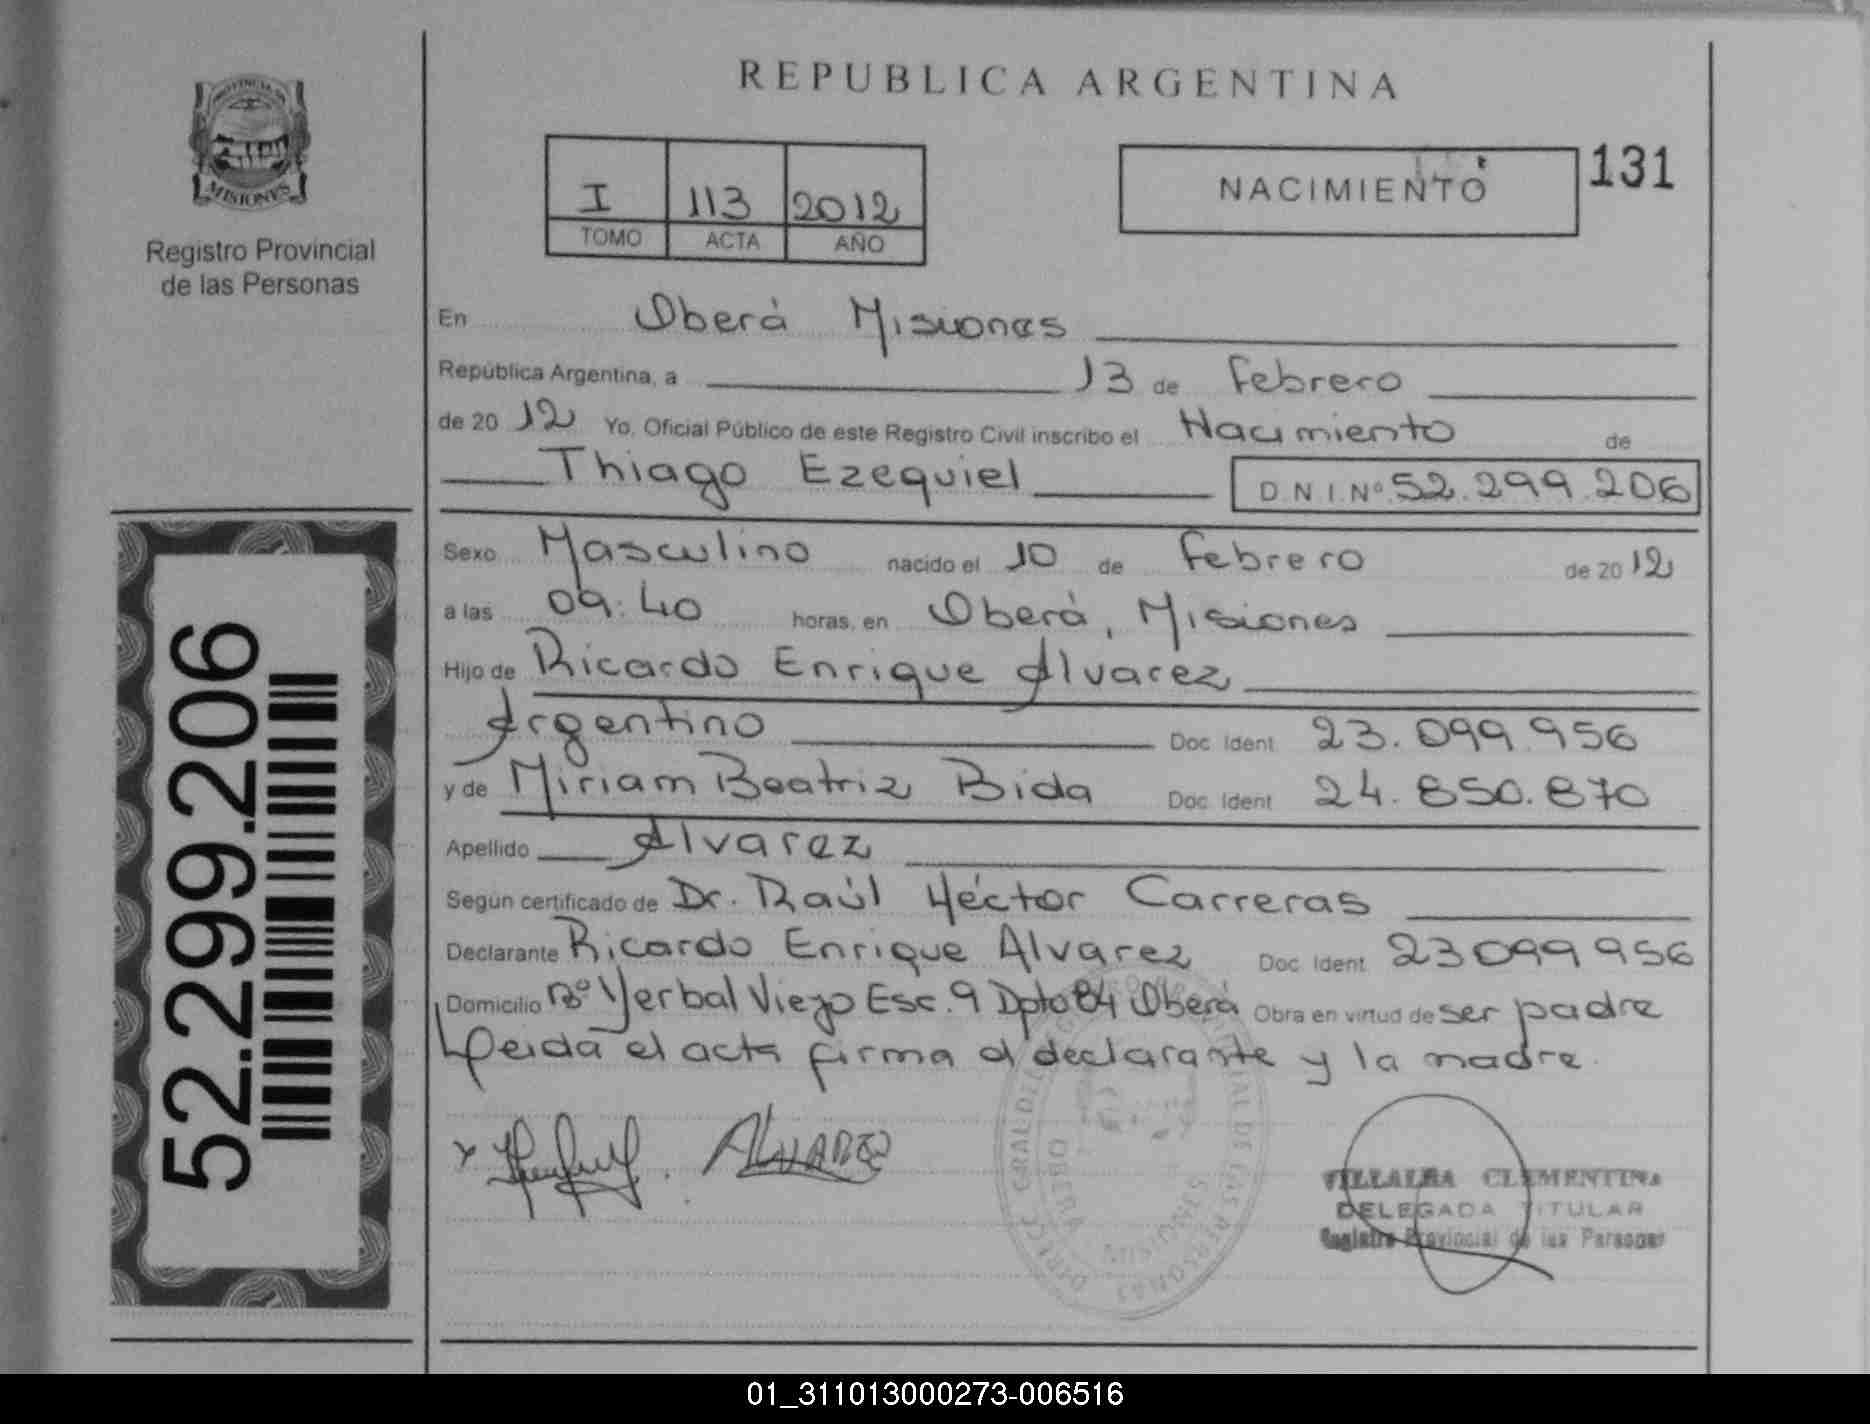 REPUBLICA ARGENTINA
PROVINCIA DE
MISIONES
Registro Provincial
de las Personas
I 113 2012
TOMO ACTA AÑO
NACIMIENTO
131
En Oberá Misiones
República Argentina, a 13 de Febrero
de 2012 Yo, Oficial Público de este Registro Civil inscribo el Nacimiento de
Thiago Ezequiel D.N.I.Nº 52.299.206
Sexo Masculino nacido el 10 de Febrero de 2012
a las 09:40 horas, en Oberá, Misiones
Hijo de Ricardo Enrique Alvarez
Argentino Doc. Ident. 23.099.956
y de Miriam Beatriz Bida Doc. Ident. 24.850.870
Apellido Alvarez
Según certificado de Dr. Raúl Héctor Carreras
Declarante Ricardo Enrique Alvarez Doc. Ident. 23099956
Domicilio Bº Yerbal Viejo Esc. 9 Dpto 84 Oberá Obra en virtud de ser padre
Leida el acta firma el declarante y la madre.
ALVAREZ
OBERA
MISIONES
VILLALBA CLEMENTINA
DELEGADA TITULAR
Registro Provincial de las Personas
52.299.206
01_311013000273-006516